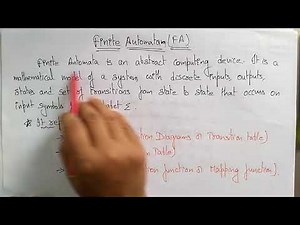 Finite Automaton (FA)
Finite Automata is an abstract computing device. It is a
mathematical model of a system with discrete inputs, outputs,
states and set of transitions from state to state that occurs on
input symbols Σ.
* It rep
→ tion Diagrams or Transition table)
→ Table)
→ tion function or Mapping function).